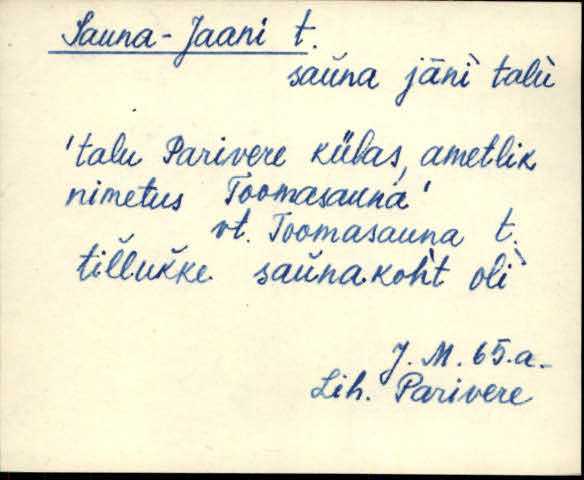 Sauna-Jaani t.
sau̬na jāni̬ talu̬
'talu Parivere külas, ametlik
nimetus Toomasauna'
vt. Toomasauna t.
til̆lukke sau̬nakoh̀t oli̬
J. M. 65.a.
Lih. Parivere